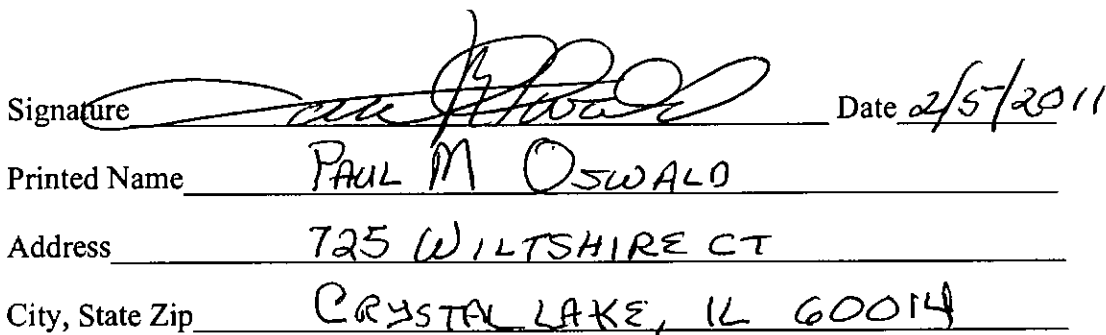 Signature Date 2/5/2011
Printed Name PAUL M OSWALD
Address 725 WILTSHIRE CT
City, State Zip CRYSTAL LAKE, IL 60014